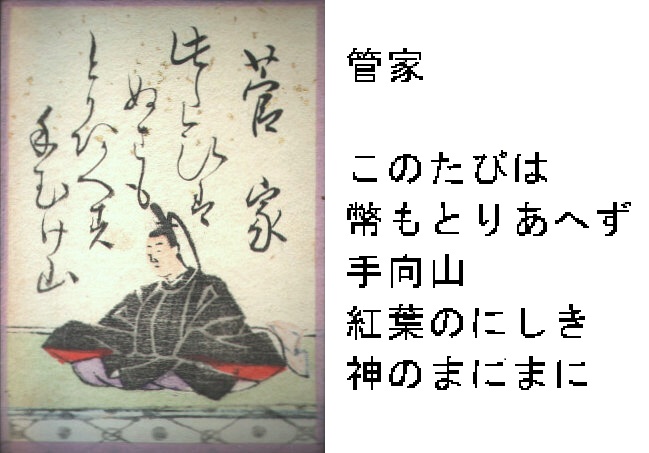 菅家
此たひは
ぬさも
とりあへす
手むけ山
管家
このたびは
幣もとりあへず
手向山
紅葉のにしき
神のまにまに